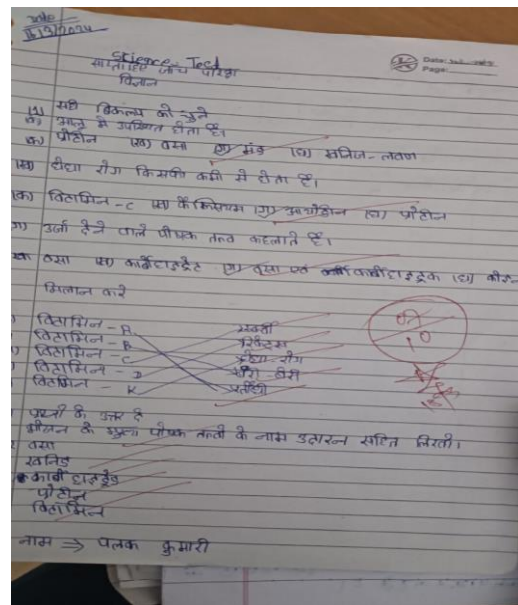 Date
11/9/2024
Science Test
साप्ताहिक जाँच परीक्षा
विज्ञान
Date:
Page:
सही विकल्प को चुने
आलु में उपस्थित होता है।
(क) प्रोटीन (ख) वसा (ग) मंड (घ) खनिज-लवण
(ख) घेघा रोग किसकी कमी से होता है।
(क) विटामिन-C (ख) कैल्शियम (ग) आयोडीन (घ) प्रोटीन
(ग) उर्जा देने वाले पोषक तत्व कहलाते है।
वसा (ख) कार्बोहाइड्रेट (ग) वसा एवं (घ)
मिलान करे
विटामिन - A
विटामिन - B
विटामिन - C
विटामिन - D
विटामिन - K
स्कर्वी
रिकेट्स
रोग
बेरी-बेरी
रतौंधी
10
प्रश्नों के उत्तर दे
भोजन के मुख्य पोषक तत्वो के नाम उदारन सहित लिखो।
वसा
खनिज
प्रोटीन
विटामिन
नाम ⇒ पलक कुमारी